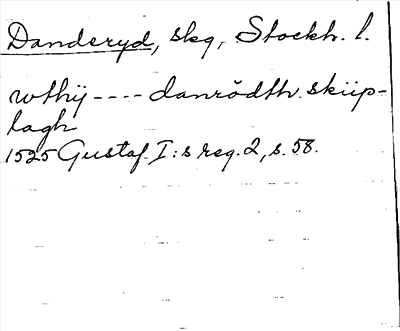 Danderyd, skg, Stockh. l.
wthÿ---- danrödth skiip-
lagh
1525 Gustaf I:s reg. 2, s. 58.